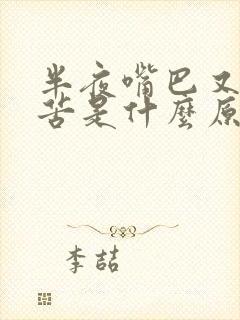 半夜嘴巴又
苦是什麼原
李喆